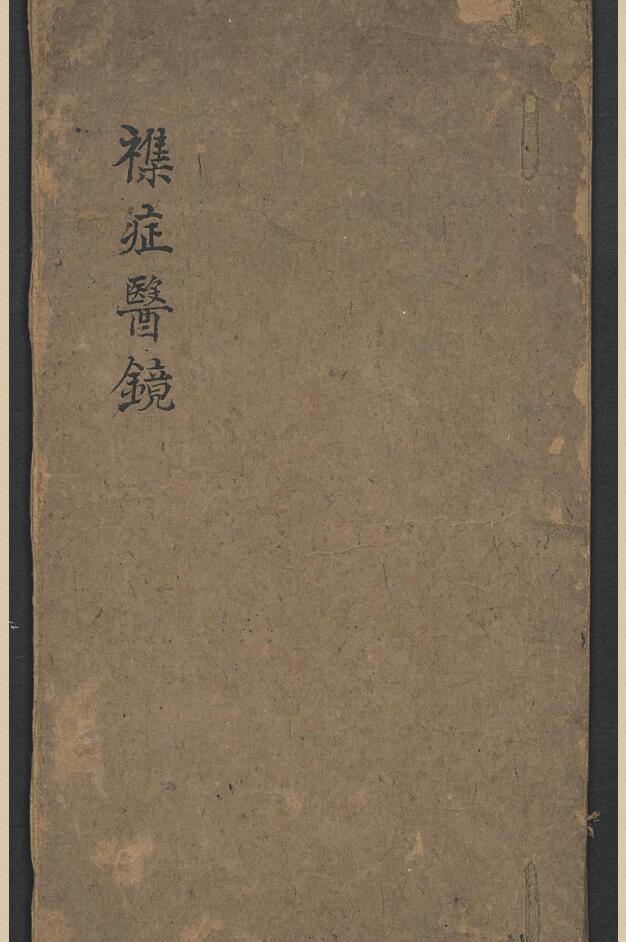 襍症醫鏡